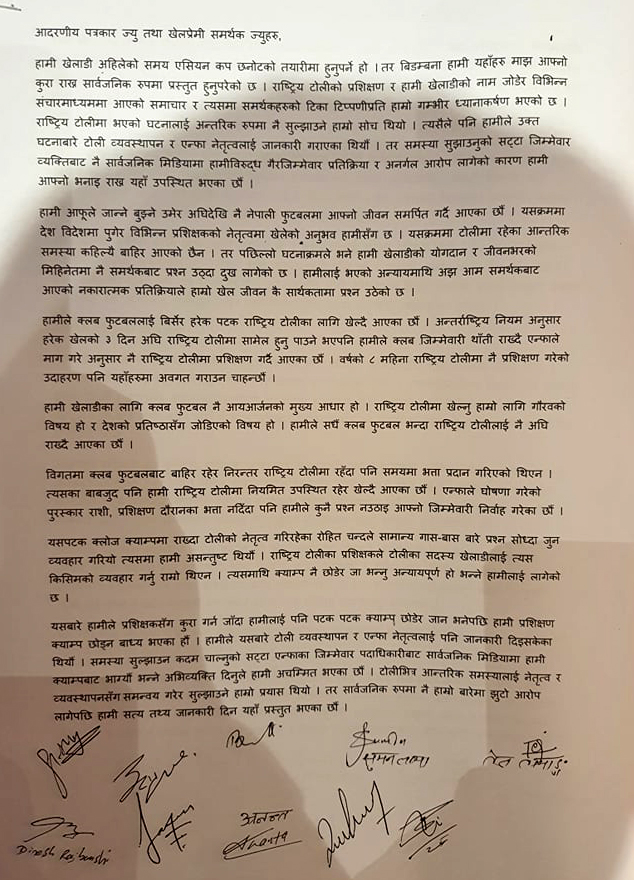 आदरणीय पत्रकार ज्यु तथा खेलप्रेमी समर्थक ज्युहरु,
हामी खेलाडी अहिलेको समय एसियन कप छनोटको तयारीमा हुनुपर्ने हो । तर बिडम्बना हामी यहाँहरु माझ आफ्नो
कुरा राख्न सार्वजनिक रुपमा प्रस्तुत हुनुपरेको छ । राष्ट्रिय टोलीको प्रशिक्षण र हामी खेलाडीको नाम जोडेर विभिन्न
संचारमाध्यममा आएको समाचार र त्यसमा समर्थकहरुको टिका टिप्पणीप्रति हाम्रो गम्भीर ध्यानाकर्षण भएको छ ।
राष्ट्रिय टोलीमा भएको घटनालाई अन्तरिक रुपमा नै सुल्झाउने हाम्रो सोच थियो । त्यसैले पनि हामीले उक्त
घटनाबारे टोली व्यवस्थापन र एन्फा नेतृत्वलाई जानकारी गराएका थियौं । तर समस्या सुझाउनुको सट्टा जिम्मेवार
व्यक्तिबाट नै सार्वजनिक मिडियामा हामीविरुद्ध गैरजिम्मेवार प्रतिक्रिया र अनर्गल आरोप लागेको कारण हामी
आफ्नो भनाइ राख्न यहाँ उपस्थित भएका छौं ।
हामी आफूले जान्ने बुझ्ने उमेर अघिदेखि नै नेपाली फुटबलमा आफ्नो जीवन समर्पित गर्दै आएका छौं । यसक्रममा
देश विदेशमा पुगेर विभिन्न प्रशिक्षकको नेतृत्वमा खेलेको अनुभव हामीसँग छ । यसक्रममा टोलीमा रहेका आन्तरिक
समस्या कहिल्यै बाहिर आएको छैन । तर पछिल्लो घटनाक्रमले भने हामी खेलाडीको योगदान र जीवनभरको
मिहिनेतमा नै समर्थकबाट प्रश्न उठ्दा दुख लागेको छ । हामीलाई भएको अन्यायमाथि अझ आम समर्थकबाट
आएको नकारात्मक प्रतिक्रियाले हाम्रो खेल जीवन कै सार्थकतामा प्रश्न उठेको छ ।
हामीले क्लब फुटबललाई बिर्सेर हरेक पटक राष्ट्रिय टोलीका लागि खेल्दै आएका छौं । अन्तर्राष्ट्रिय नियम अनुसार
हरेक खेलको ३ दिन अघि राष्ट्रिय टोलीमा सामेल हुनु पाउने भएपनि हामीले क्लब जिम्मेवारी थाँती राख्दै एन्फाले
माग गरे अनुसार नै राष्ट्रिय टोलीमा प्रशिक्षण गर्दै आएका छौं । वर्षको ८ महिना राष्ट्रिय टोलीमा नै प्रशिक्षण गरेको
उदाहरण पनि यहाँहरुमा अवगत गराउन चाहन्छौं ।
हामी खेलाडीका लागि क्लब फुटबल नै आयआर्जनको मुख्य आधार हो । राष्ट्रिय टोलीमा खेल्नु हाम्रो लागि गौरवको
विषय हो र देशको प्रतिष्ठासँग जोडिएको विषय हो । हामीले सधैं क्लब फुटबल भन्दा राष्ट्रिय टोलीलाई नै अघि
राख्दै आएका छौं ।
विगतमा क्लब फुटबलबाट बाहिर रहेर निरन्तर राष्ट्रिय टोलीमा रहँदा पनि समयमा भत्ता प्रदान गरिएको थिएन ।
त्यसका बाबजुद पनि हामी राष्ट्रिय टोलीमा नियमित उपस्थित रहेर खेल्दै आएका छौं । एन्फाले घोषणा गरेको
पुरस्कार राशी, प्रशिक्षण दौरानका भत्ता नदिँदा पनि हामीले कुनै प्रश्न नउठाइ आफ्नो जिम्मेवारी निर्वाह गरेका छौं ।
यसपटक क्लोज क्याम्पमा राख्दा टोलीको नेतृत्व गरिरहेका रोहित चन्दले सामान्य गास-बास बारे प्रश्न सोध्दा जुन
व्यवहार गरियो त्यसमा हामी असन्तुष्ट थियौं । राष्ट्रिय टोलीका प्रशिक्षकले टोलीका सदस्य खेलाडीलाई त्यस
किसिमको व्यवहार गर्नु राम्रो थिएन । त्यसमाथि क्याम्प नै छोडेर जा भन्नु अन्यायपूर्ण हो भन्ने हामीलाई लागेको
छ ।
यसबारे हामीले प्रशिक्षकसँग कुरा गर्न जाँदा हामीलाई पनि पटक पटक क्याम्प् छोडेर जान भनेपछि हामी प्रशिक्षण
क्याम्प छोड्न बाध्य भएका हौं । हामीले यसबारे टोली व्यवस्थापन र एन्फा नेतृत्वलाई पनि जानकारी दिइसकेका
थियौं । समस्या सुल्झाउन कदम चाल्नुको सट्टा एन्फाका जिम्मेवार पदाधिकारीबाट सार्वजनिक मिडियामा हामी
क्याम्पबाट भाग्यौं भन्ने अभिव्यक्ति दिनुले हामी अचम्मित भएका छौं । टोलीभित्र आन्तरिक समस्यालाई नेतृत्व र
व्यवस्थापनसँग समन्वय गरेर सुल्झाउने हाम्रो प्रयास थियो । तर सार्वजनिक रुपमा नै हाम्रो बारेमा झुटो आरोप
लागेपछि हामी सत्य तथ्य जानकारी दिन यहाँ प्रस्तुत भएका छौं ।
सुमन लामा
अनन्त
Dinesh Rajbanshi